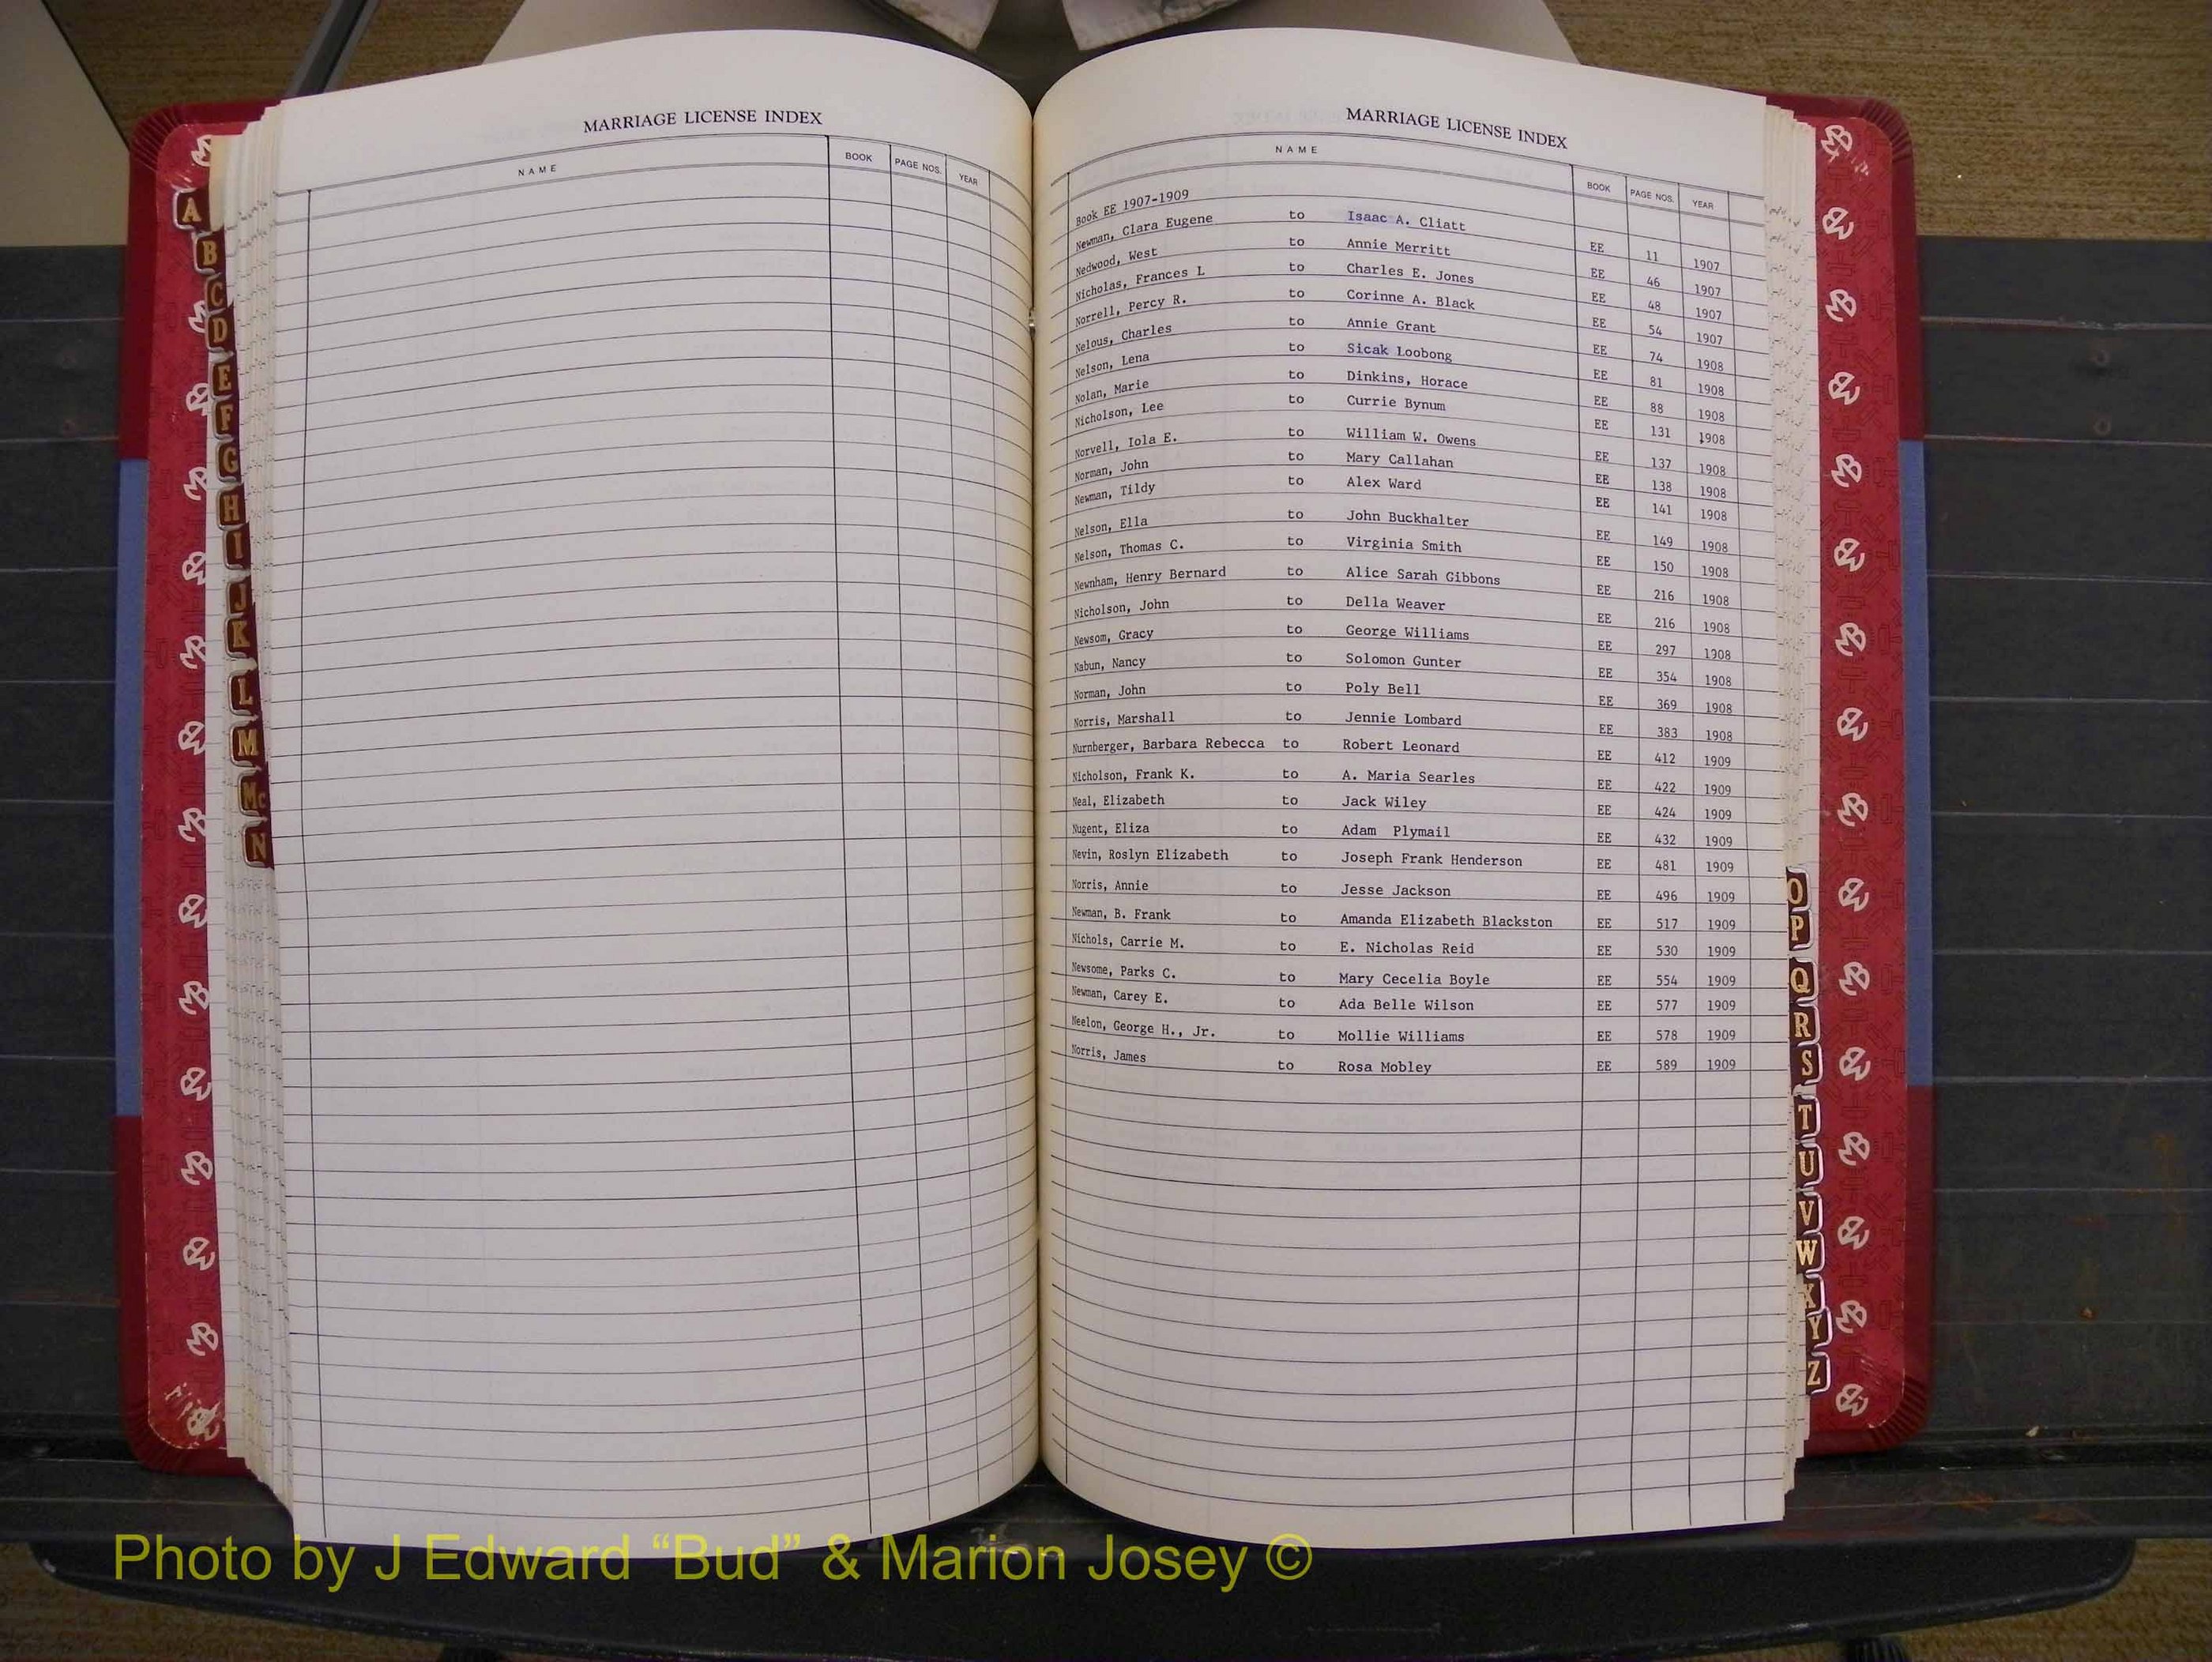 MARRIAGE LICENSE INDEX
NAME BOOK PAGE NOS. YEAR
A
B
C
D
E
F
G
H
I
J
K
L
M
Mc
N
MARRIAGE LICENSE INDEX
NAME BOOK PAGE NOS. YEAR
Book EE 1907-1909
Newman, Clara Eugene to Isaac A. Cliatt EE 11 1907
Nedwood, West to Annie Merritt EE 46 1907
Nicholas, Frances L to Charles E. Jones EE 48 1907
Norrell, Percy R. to Corinne A. Black EE 54 1907
Nelous, Charles to Annie Grant EE 74 1908
Nelson, Lena to Sicak Loobong EE 81 1908
Nolan, Marie to Dinkins, Horace EE 88 1908
Nicholson, Lee to Currie Bynum EE 131 1908
Norvell, Iola E. to William W. Owens EE 137 1908
Norman, John to Mary Callahan EE 138 1908
Newman, Tildy to Alex Ward EE 141 1908
Nelson, Ella to John Buckhalter EE 149 1908
Nelson, Thomas C. to Virginia Smith EE 150 1908
Newnham, Henry Bernard to Alice Sarah Gibbons EE 216 1908
Nicholson, John to Della Weaver EE 216 1908
Newsom, Gracy to George Williams EE 297 1908
Nabun, Nancy to Solomon Gunter EE 354 1908
Norman, John to Poly Bell EE 369 1908
Norris, Marshall to Jennie Lombard EE 383 1908
Nurnberger, Barbara Rebecca to Robert Leonard EE 412 1909
Nicholson, Frank K. to A. Maria Searles EE 422 1909
Neal, Elizabeth to Jack Wiley EE 424 1909
Nugent, Eliza to Adam Plymail EE 432 1909
Nevin, Roslyn Elizabeth to Joseph Frank Henderson EE 481 1909
Norris, Annie to Jesse Jackson EE 496 1909
Newman, B. Frank to Amanda Elizabeth Blackston EE 517 1909
Nichols, Carrie M. to E. Nicholas Reid EE 530 1909
Newsome, Parks C. to Mary Cecelia Boyle EE 554 1909
Newman, Carey E. to Ada Belle Wilson EE 577 1909
Neelon, George H., Jr. to Mollie Williams EE 578 1909
Norris, James to Rosa Mobley EE 589 1909
O
P
Q
R
S
T
U
V
W
X
Y
Z
Photo by J Edward “Bud” & Marion Josey ©